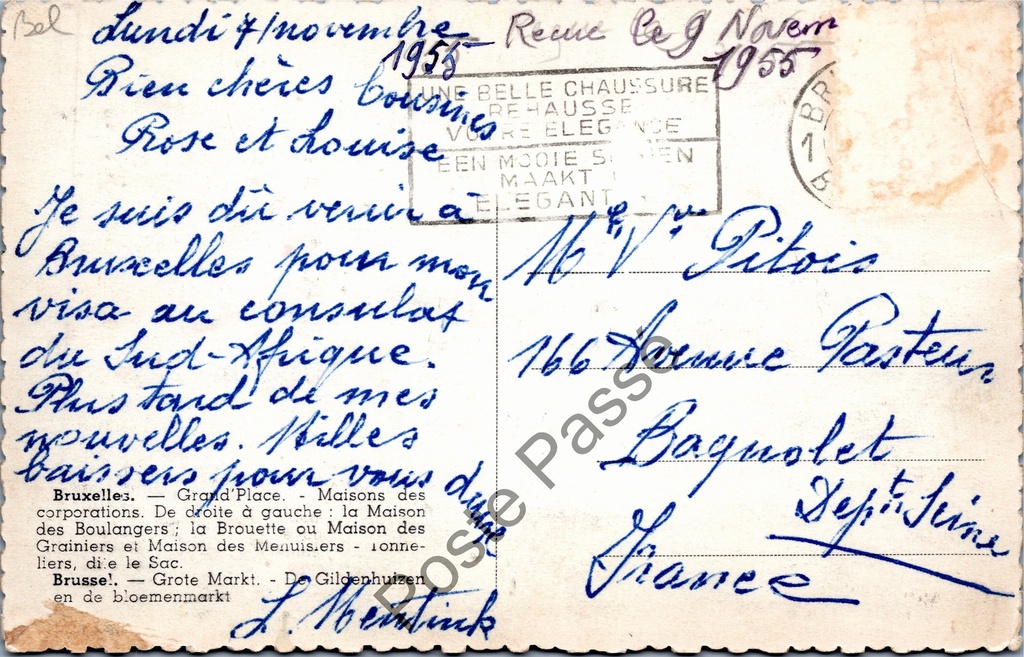 Bel
Lundi 7/novembre
1955
Recue le 9 Novem
1955
Bien chères Cousines
Rose et Louise
UNE BELLE CHAUSSURE
REHAUSSE
VOTRE ELEGANCE
EEN MOOIE S EN
MAAKT
ELEGANT
BR
1
Je suis dû venir à
Bruxelles pour mon
visa au consulat
du Sud-Afrique.
Plus tard de mes
nouvelles. Milles
baisers pour vous deux
L. Mentink
Bruxelles. — Grand'Place. - Maisons des
corporations. De droite à gauche : la Maison
des Boulangers ; la Brouette ou Maison des
Grainiers et Maison des Menuisiers - Tonne-
liers, dite le Sac.
Brussel. — Grote Markt. - De Gildenhuizen
en de bloemenmarkt
Me Vve Pitois
166 Avenue Pasteur
Bagnolet
Dept Seine
France
Poste Passé